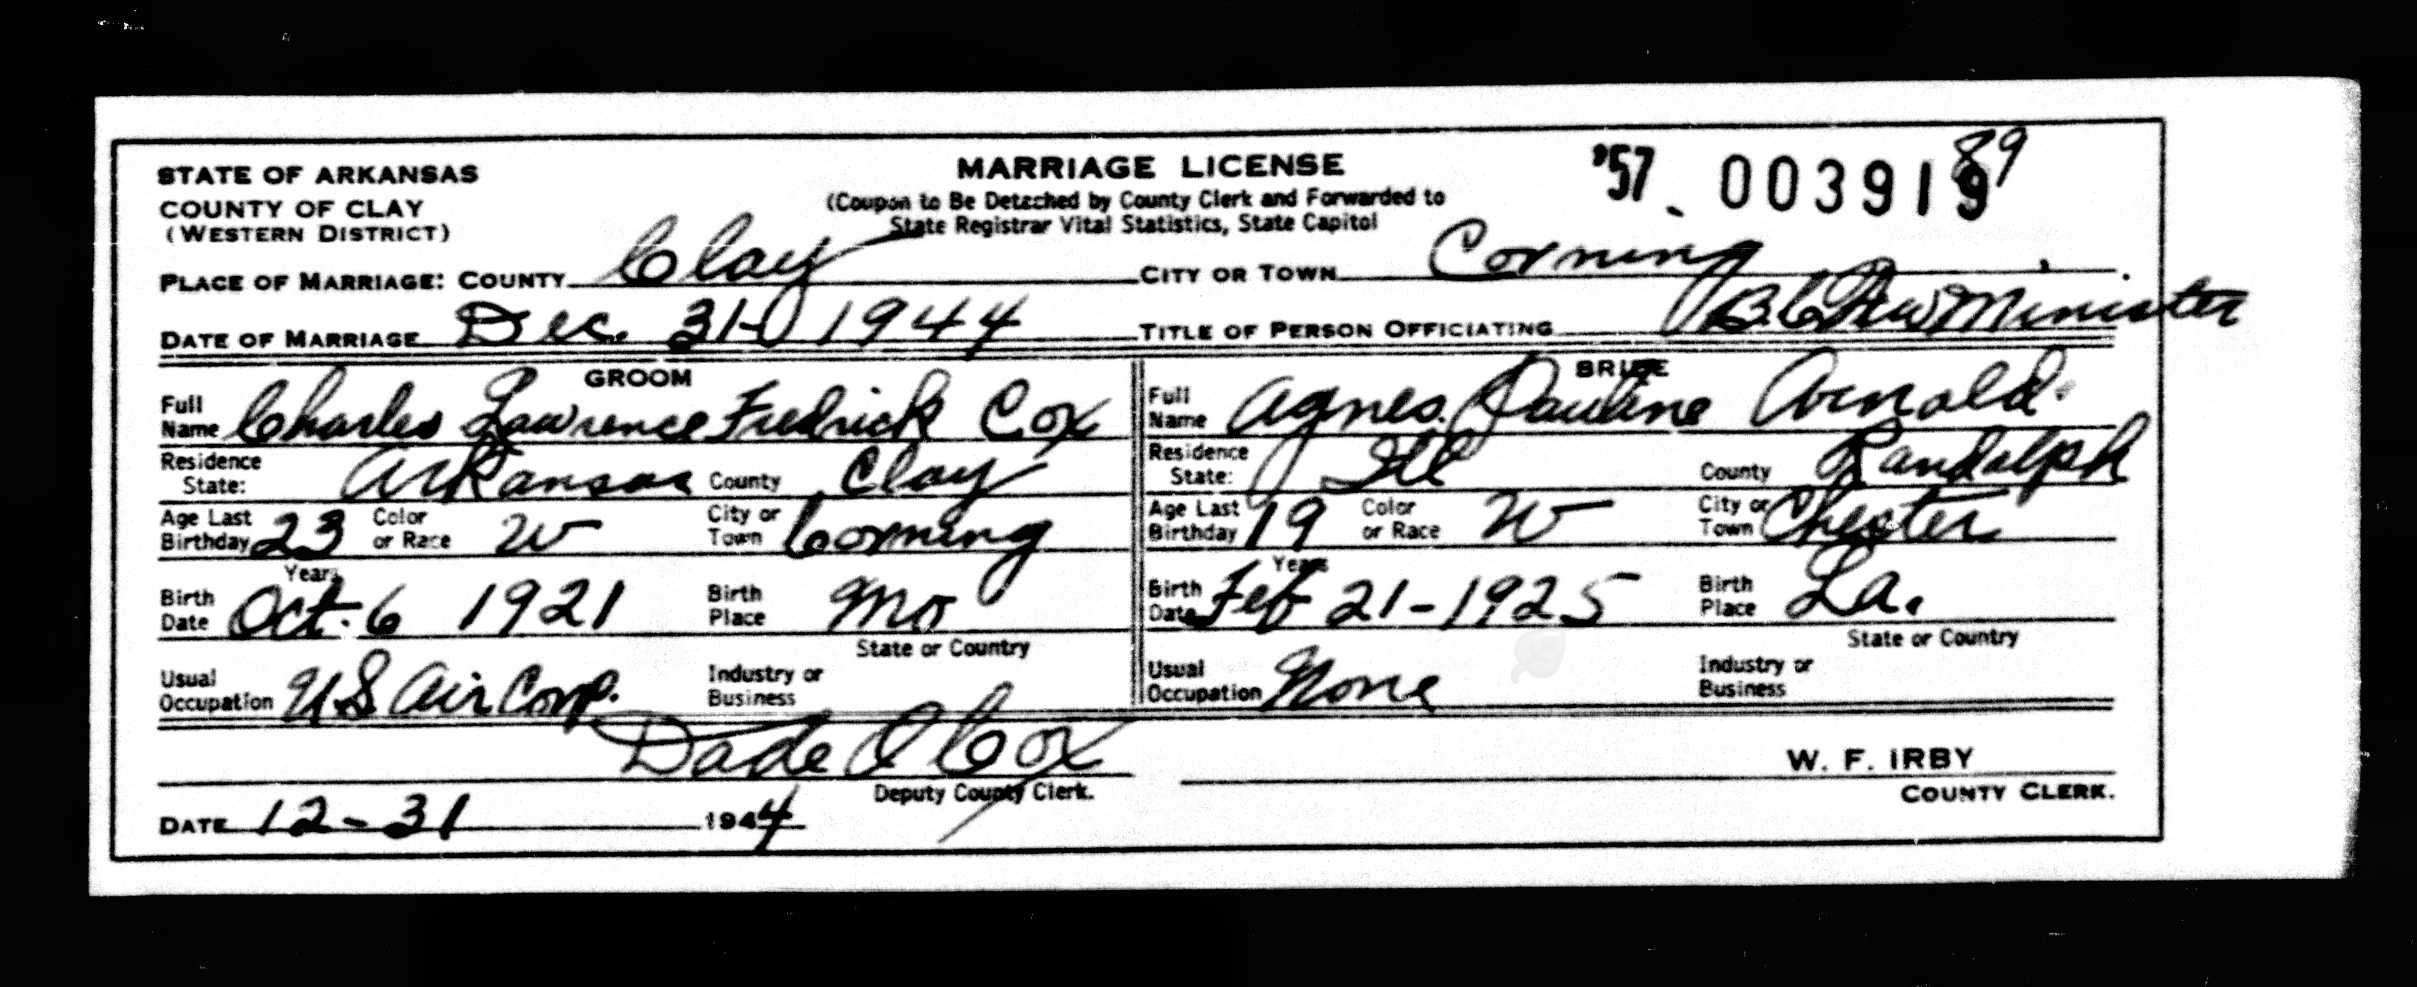 STATE OF ARKANSAS
COUNTY OF CLAY
(WESTERN DISTRICT)
MARRIAGE LICENSE
(Coupon to Be Detached by County Clerk and Forwarded to
State Registrar Vital Statistics, State Capitol
'57 - 003919 89
PLACE OF MARRIAGE: COUNTY Clay CITY OR TOWN Corning
DATE OF MARRIAGE Dec. 31- 1944 TITLE OF PERSON OFFICIATING B.C. Minister
GROOM
Full Name Charles Lawrence Fredrick Cox
Residence State: Arkansas County Clay
Age Last Birthday 23 Years Color or Race W City or Town Corning
Birth Date Oct. 6 1921 Birth Place Mo
State or Country
Usual Occupation US Air Corp. Industry or Business
BRIDE
Full Name Agnes Pauline Arnold
Residence State: Ill County Randolph
Age Last Birthday 19 Years Color or Race W City or Town Chester
Birth Date Feb 21-1925 Birth Place La.
State or Country
Usual Occupation None Industry or Business
Dade O Cox
Deputy County Clerk.
W. F. IRBY
COUNTY CLERK.
DATE 12-31 1944